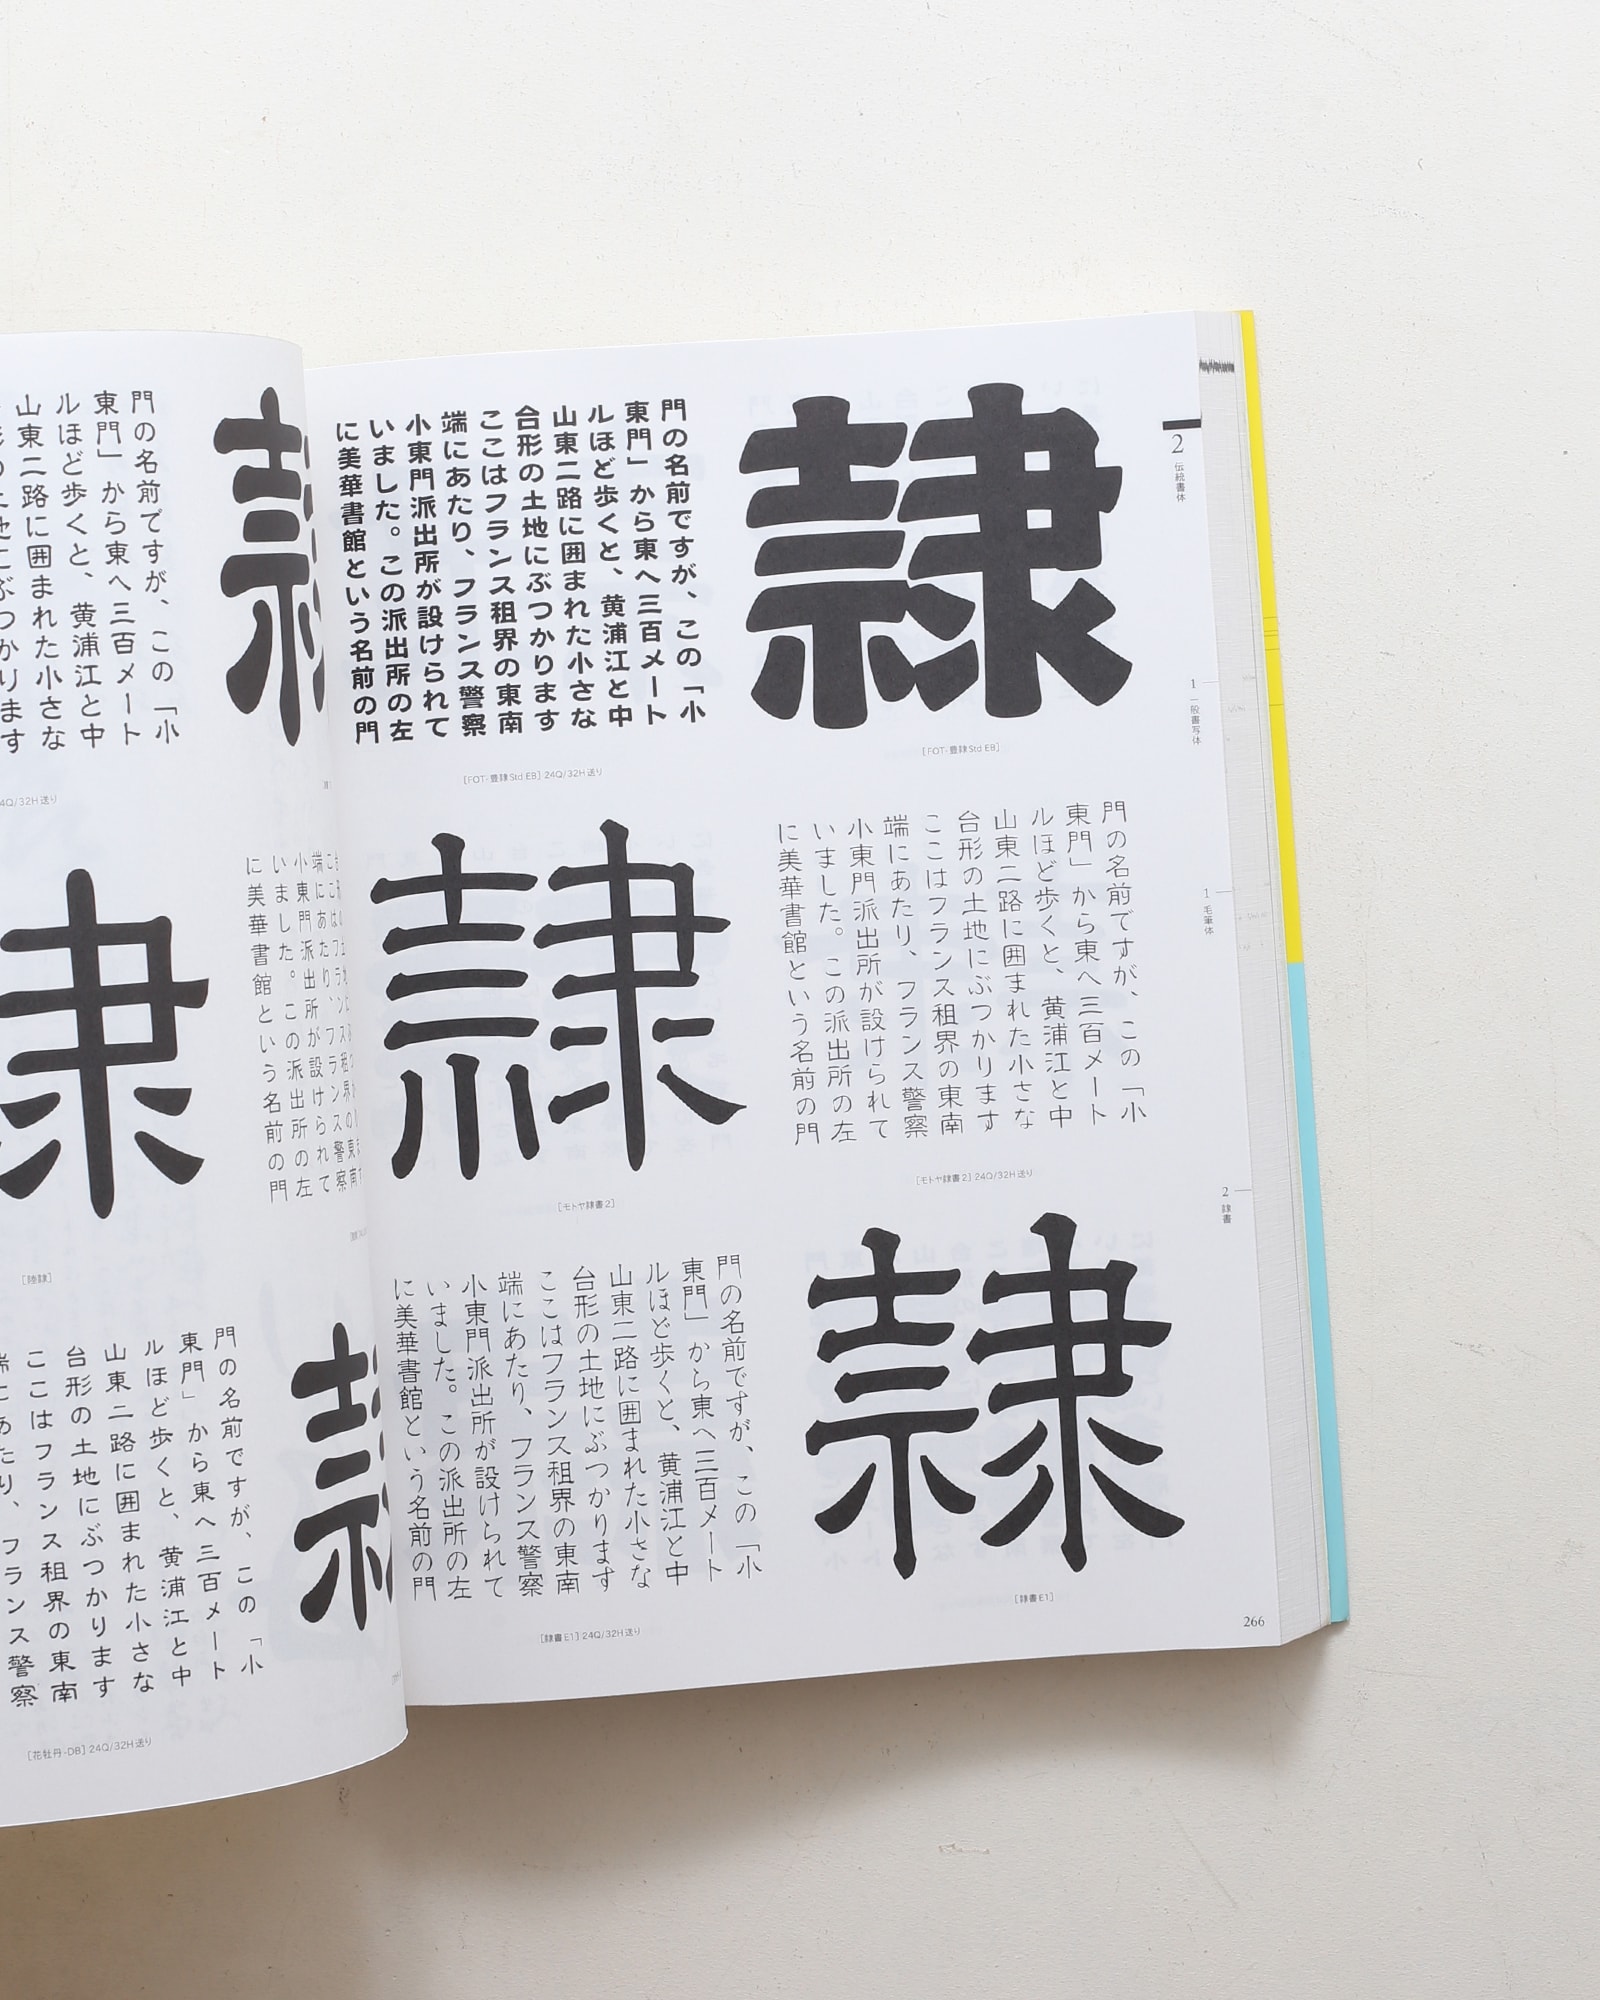 隷
[FOT-豊隷 Std EB]
門の名前ですが、この「小
東門」から東へ三百メート
ルほど歩くと、黄浦江と中
山東二路に囲まれた小さな
台形の土地にぶつかります
ここはフランス租界の東南
端にあたり、フランス警察
小東門派出所が設けられて
いました。この派出所の左
に美華書館という名前の門
[FOT-豊隷 Std EB] 24Q/32H送り
門の名前ですが、この「小
東門」から東へ三百メート
ルほど歩くと、黄浦江と中
山東二路に囲まれた小さな
台形の土地にぶつかります
ここはフランス租界の東南
端にあたり、フランス警察
小東門派出所が設けられて
いました。この派出所の左
に美華書館という名前の門
[モトヤ隷書2] 24Q/32H送り
隷
[モトヤ隷書2]
隷
[隷書E1]
門の名前ですが、この「小
東門」から東へ三百メート
ルほど歩くと、黄浦江と中
山東二路に囲まれた小さな
台形の土地にぶつかります
ここはフランス租界の東南
端にあたり、フランス警察
小東門派出所が設けられて
いました。この派出所の左
に美華書館という名前の門
[隷書E1] 24Q/32H送り
2 伝統書体
1 一般書写体
1 毛筆体
2 隷書
266
門の名前ですが、この「小
東門」から東へ三百メート
ルほど歩くと、黄浦江と中
山東二路に囲まれた小さな
4Q/32H送り
小東門派出所が設けられて
いました。この派出所の左
に美華書館という名前の門
[陸隷]
門の名前ですが、この「小
東門」から東へ三百メート
ルほど歩くと、黄浦江と中
山東二路に囲まれた小さな
台形の土地にぶつかります
ここはフランス租界の東南
端にあたり、フランス警察
[花牡丹-DB] 24Q/32H送り